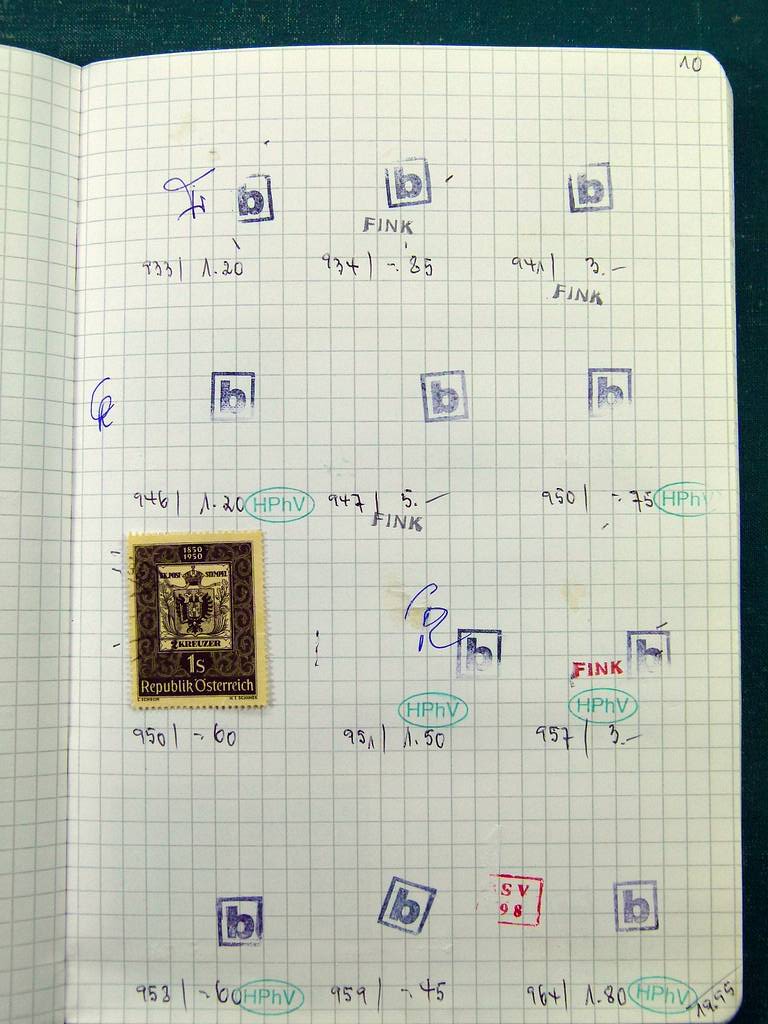 10
b b b
FINK
933 | 1.20 934 | -.85 941 | 3.-
FINK
b b b
946 | 1.20 HPhV 947 | 5.- 950 | -.75 HPhV
FINK
1850
1950
K.K. POST STEMPEL
2 KREUZER
1s
Republik Österreich
b b
FINK
HPhV HPhV
950 | -.60 951 | 1.50 957 | 3.-
b b SV b
98
953 | -.60 HPhV 959 | -.45 964 | 1.80 HPhV 19.95